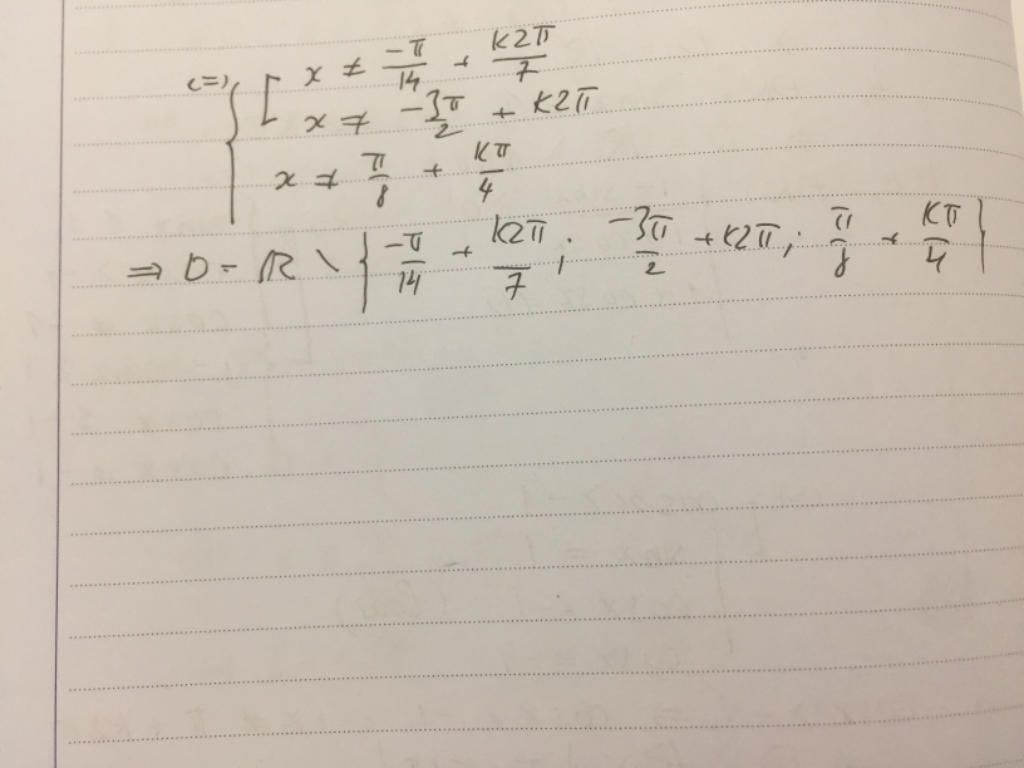 <=> { [ x ≠ -π/14 + k2π/7
x ≠ -3π/2 + k2π
x ≠ π/8 + kπ/4
=> D = R \ { -π/14 + k2π/7 ; -3π/2 + k2π ; π/8 + kπ/4 }